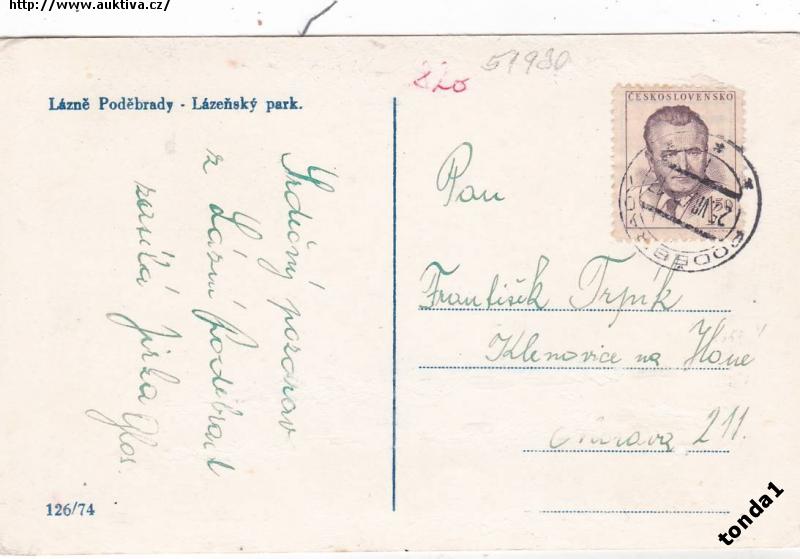 http://www.auktiva.cz/
820
51980
Lázně Poděbrady - Lázeňský park.
Srdečný pozdrav
z Lázní Poděbrad
zasílá Jirka
ČESKOSLOVENSKO
Pan
František Trpík
Klenovice na Hané
211.
126/74
tonda1